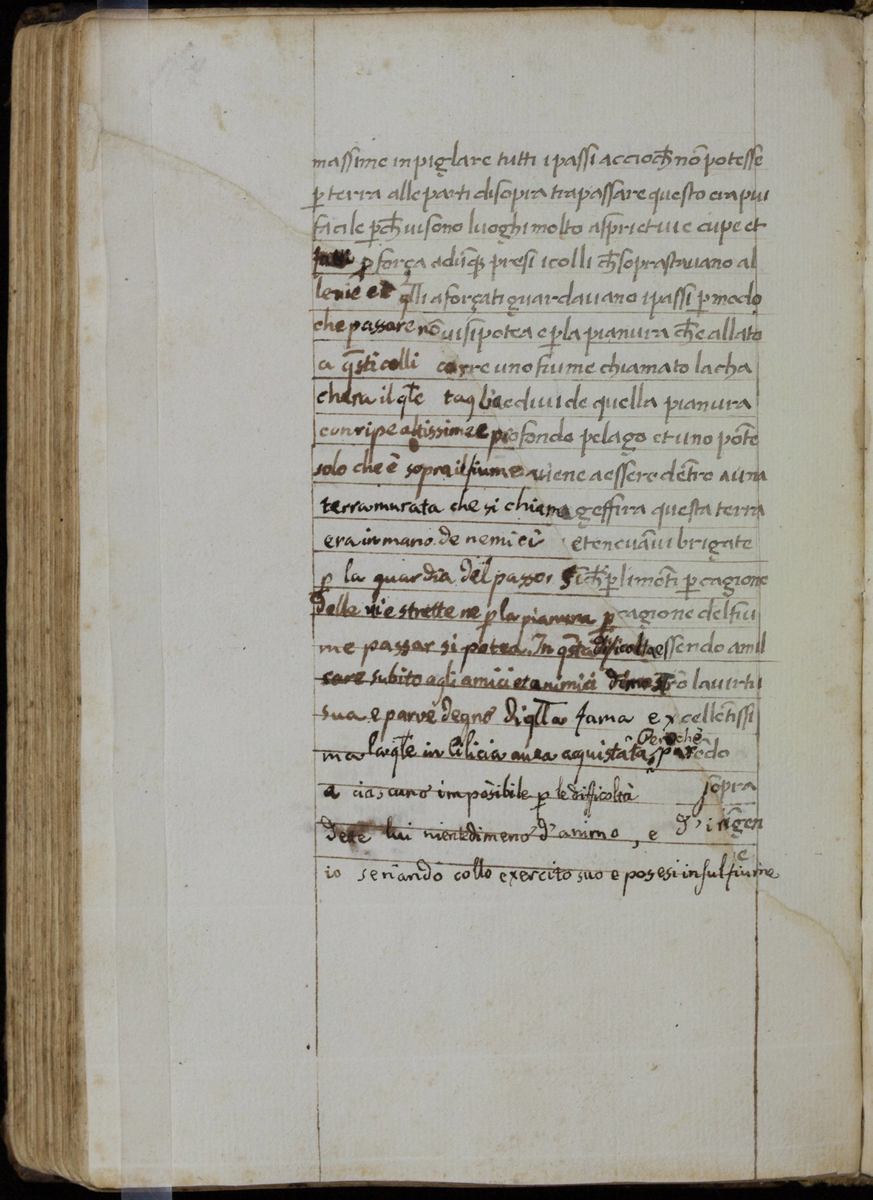 massime inpiglare tutti ipassi accioch̄ nō potesse
p̱ terra alle parti disopra trapassare questo era piu
facile p̱ch̄ ui sono luoghi molto asp̱ri et uie cupe et
p̱ força adūq̱ presi icolli ch̄ soprastauano al
le uie et q̄lli aforçati guardauano ipassi p̱ modo
che passare nō ui si potea e p̱ la pianura ch̄ e allato
a q̄sti colli corre uno fiume chiamato lacha
chera il q̄le taglia e diuide quella pianura
con ripe altissime e profondo pelago et uno pōte
solo che ē sopra il fiume uiene a essere dētro a una
terra murata che si chiama geffira questa terra
era in mano de nemici et teneuāui brigate
p̱ la guardia del passo sich̄ p̱ li mōti p̱ cagione
delle uie strette ne p̱ la pianura p̱ cagione del fiu
me passar si potea. In q̄sta dificolta essendo amil
care subito agli amici et animici dimostrō la uirtu
sua e parue degno di q̄lla fama excellētissi
ma laq̄le in Cilicia auea aquistāta, Per oche parēdo
a ciascuno impossibile p̱ le difficoltà sopra
dette lui nientedimeno d'animo, e d'ingen
io seruando collo exercito suo e posesi in sul fiume